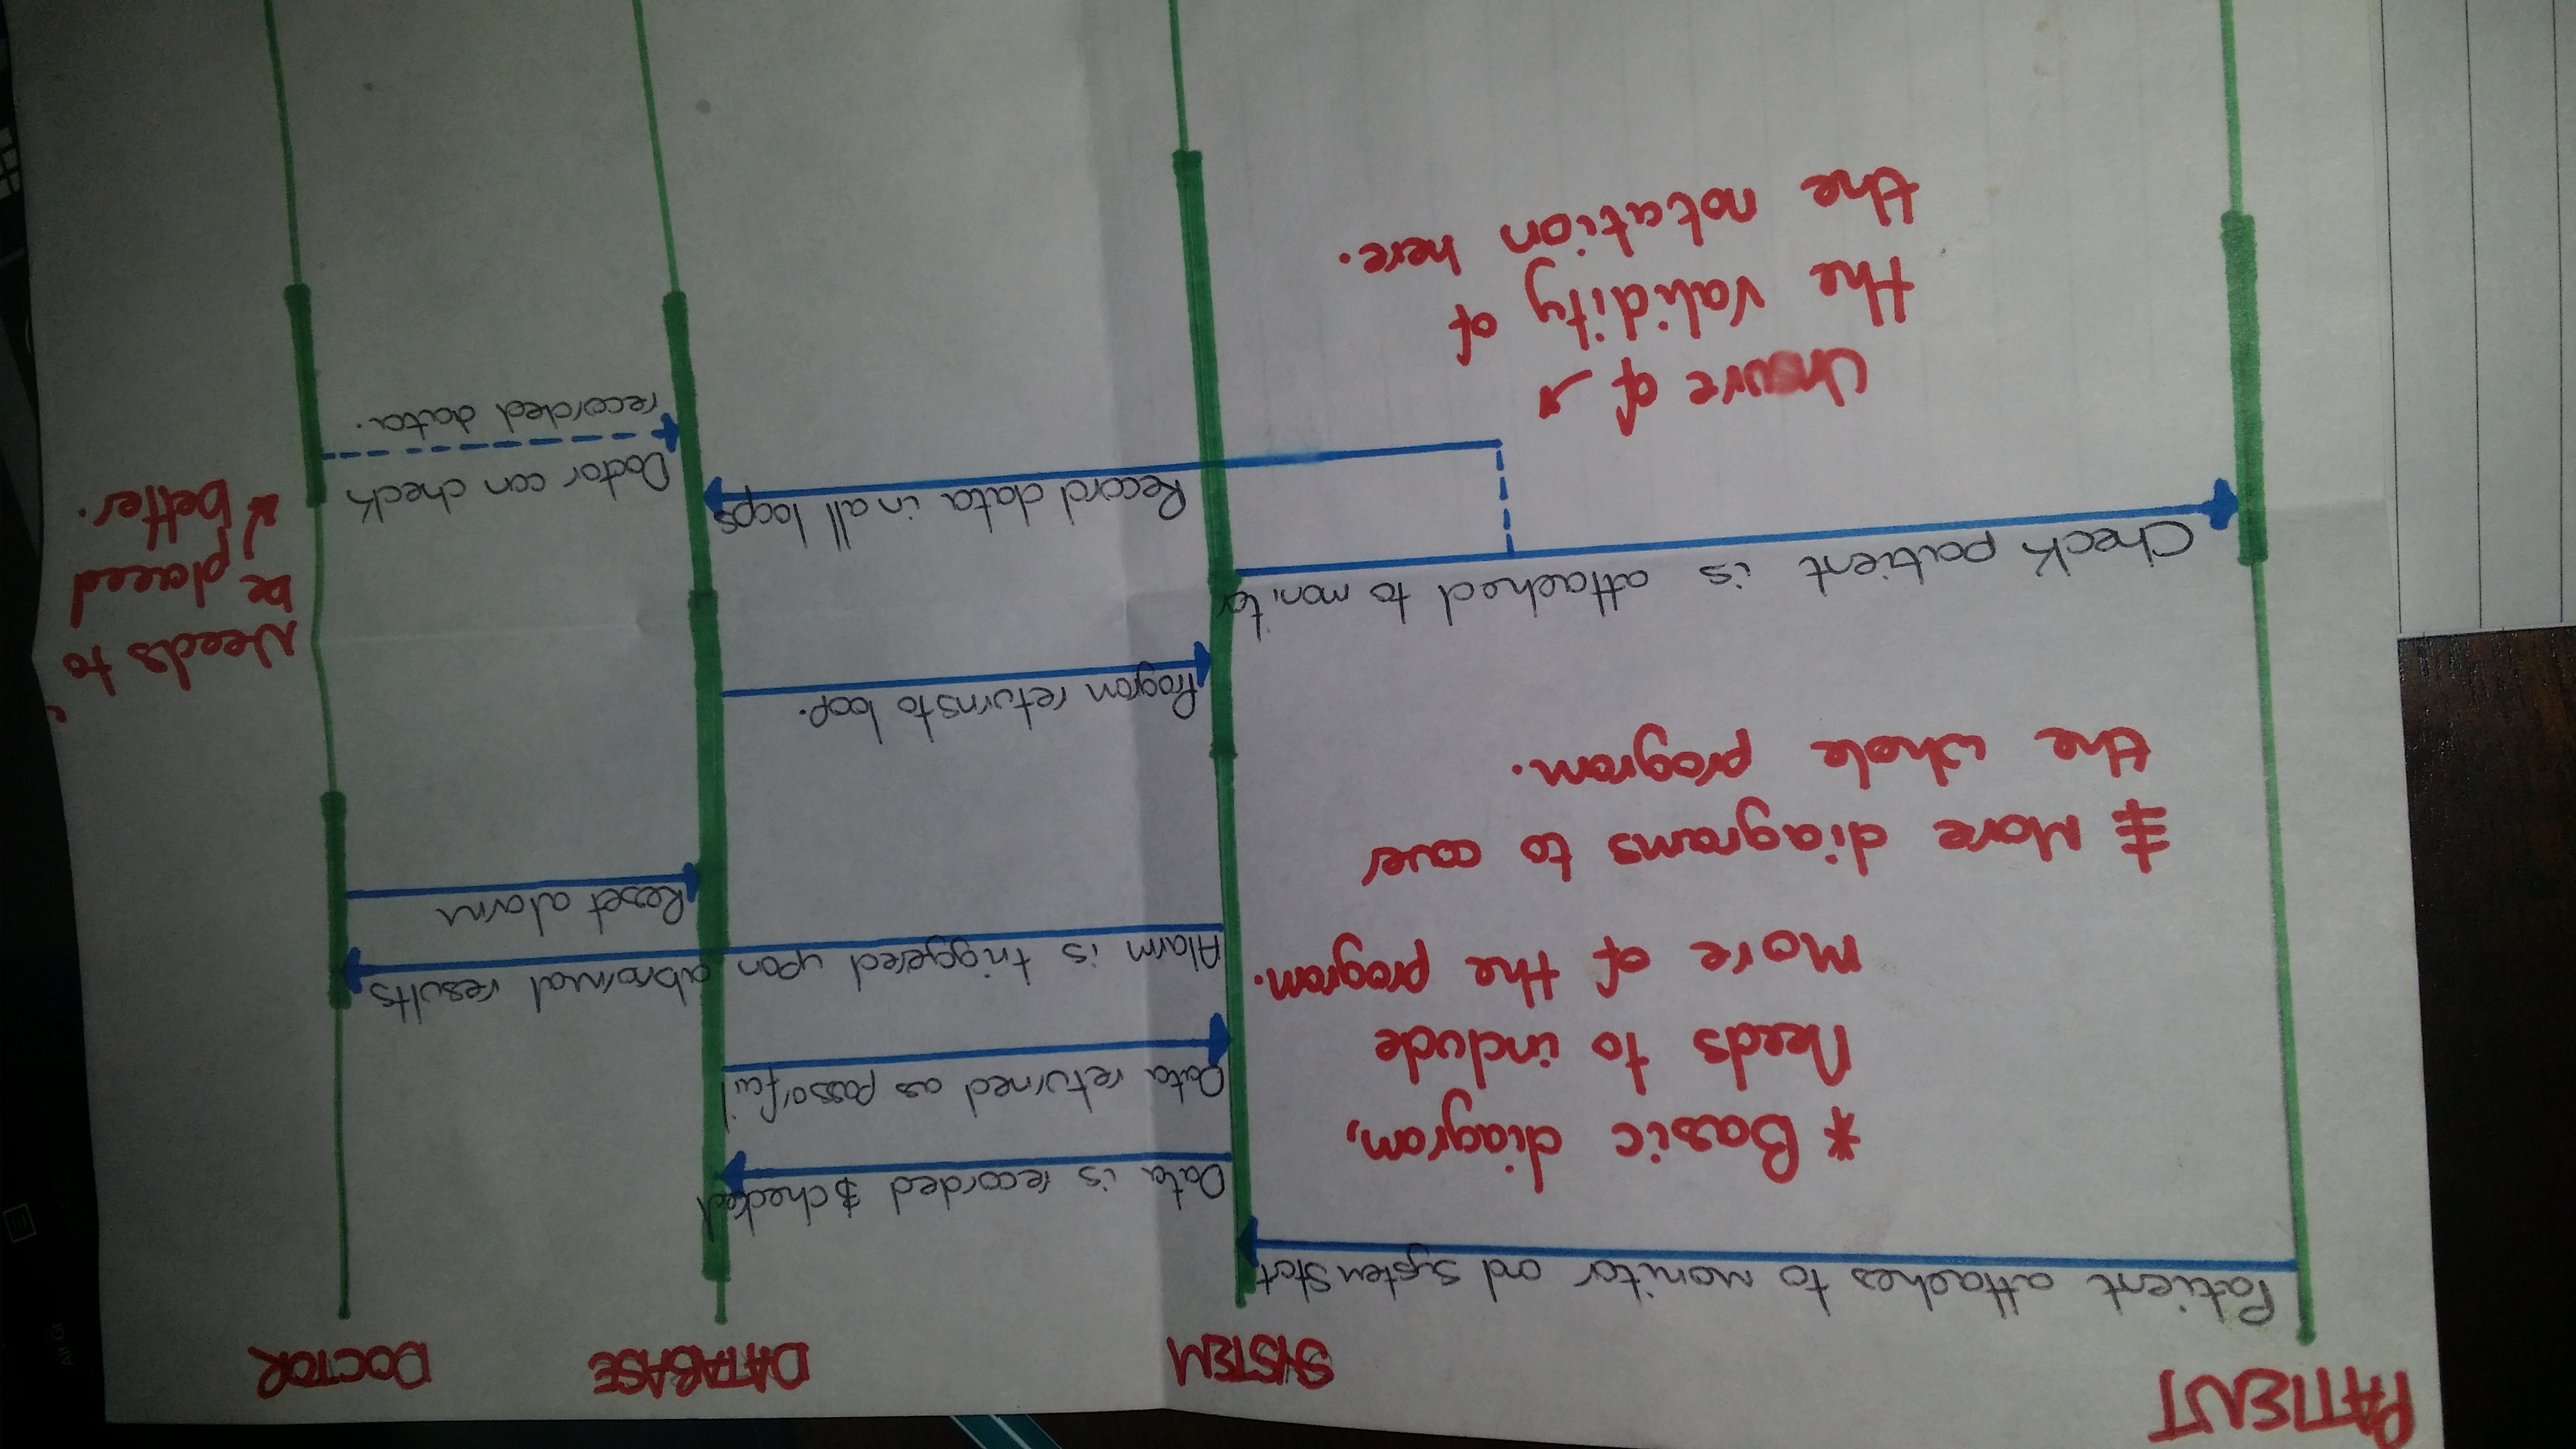 PATIENT
SYSTEM
DATABASE
DOCTOR
Patient attaches to monitor and system start
Data is recorded & checked
Data returned as pass or fail
Alarm is triggered upon abnormal results
Reset alarm
* Basic diagram,
Needs to include
more of the program.
# More diagrams to cover
the whole program.
Program returns to loop.
Needs to
be placed
better.
Check patient is attached to monitor
Record data in all loops
Doctor can check
recorded data.
Unsure of
the validity of
the notation here.
Alt Gr